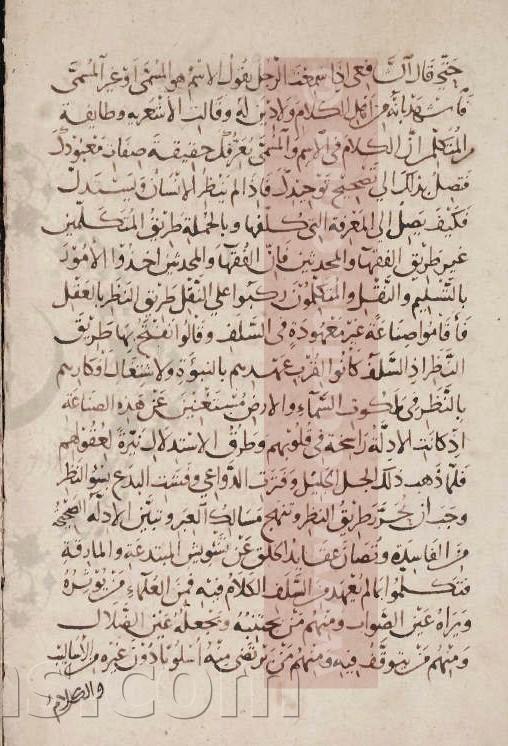 حتى قال الشافعي اذا سمعت الرجل يقول الاسم هو المسمى او غير المسمى
فاشهد بانه من اهل الكلام ولا دين له وقالت الاشعرية وطايفة
من المتكلمين ان الكلام في الاسم والمسمى يعرفك حقيقة صفات معبودك
فتصل بذلك الى تصحيح توحيدك فاذا لم ينظر الانسان ويستدل
فكيف يصل الى المعرفة التي كلفها وبالجملة طريق المتكلمين
غير طريق الفقهاء والمحدثين فان الفقهاء والمحدثين اخذوا الامور
بالتسليم والنقل والمتكلمون ركبوا على النقل طريق النظر بالعقل
فأقاموا صناعة غير معهودة في السلف وقالوا نفتح بها طريق
النظر اذ السلف كانوا لقرب عهدهم بالنبوة ولاشتغال افكارهم
بالنظر في ملكوت السماء والارض مستغنين عن هذه الصناعة
اذ كانت الادلة راجحة في قلوبهم وطرق الاستدلال نيرة لعقولهم
فلما ذهب ذلك الجيل الجليل وفترت الدواعي وفشت البدع بسوء النظر
وجب ان يحرر طريق النظر وتنهج مسالك العبر وتبين الادلة الصحيحة
من الفاسدة وتصان عقايد الخلق عن تشويش المبتدعة والمارقة
فتكلموا بما لم يعهد من السلف الكلام فيه فمن العلماء من يوثره
ويراه عين الصواب ومنهم من يجتنبه ويجعله عين الضلال
ومنهم من يتوقف فيه ومنهم من يرتضى منه اسلوبا دون غيره من الاساليب
والكلام
nsi.com